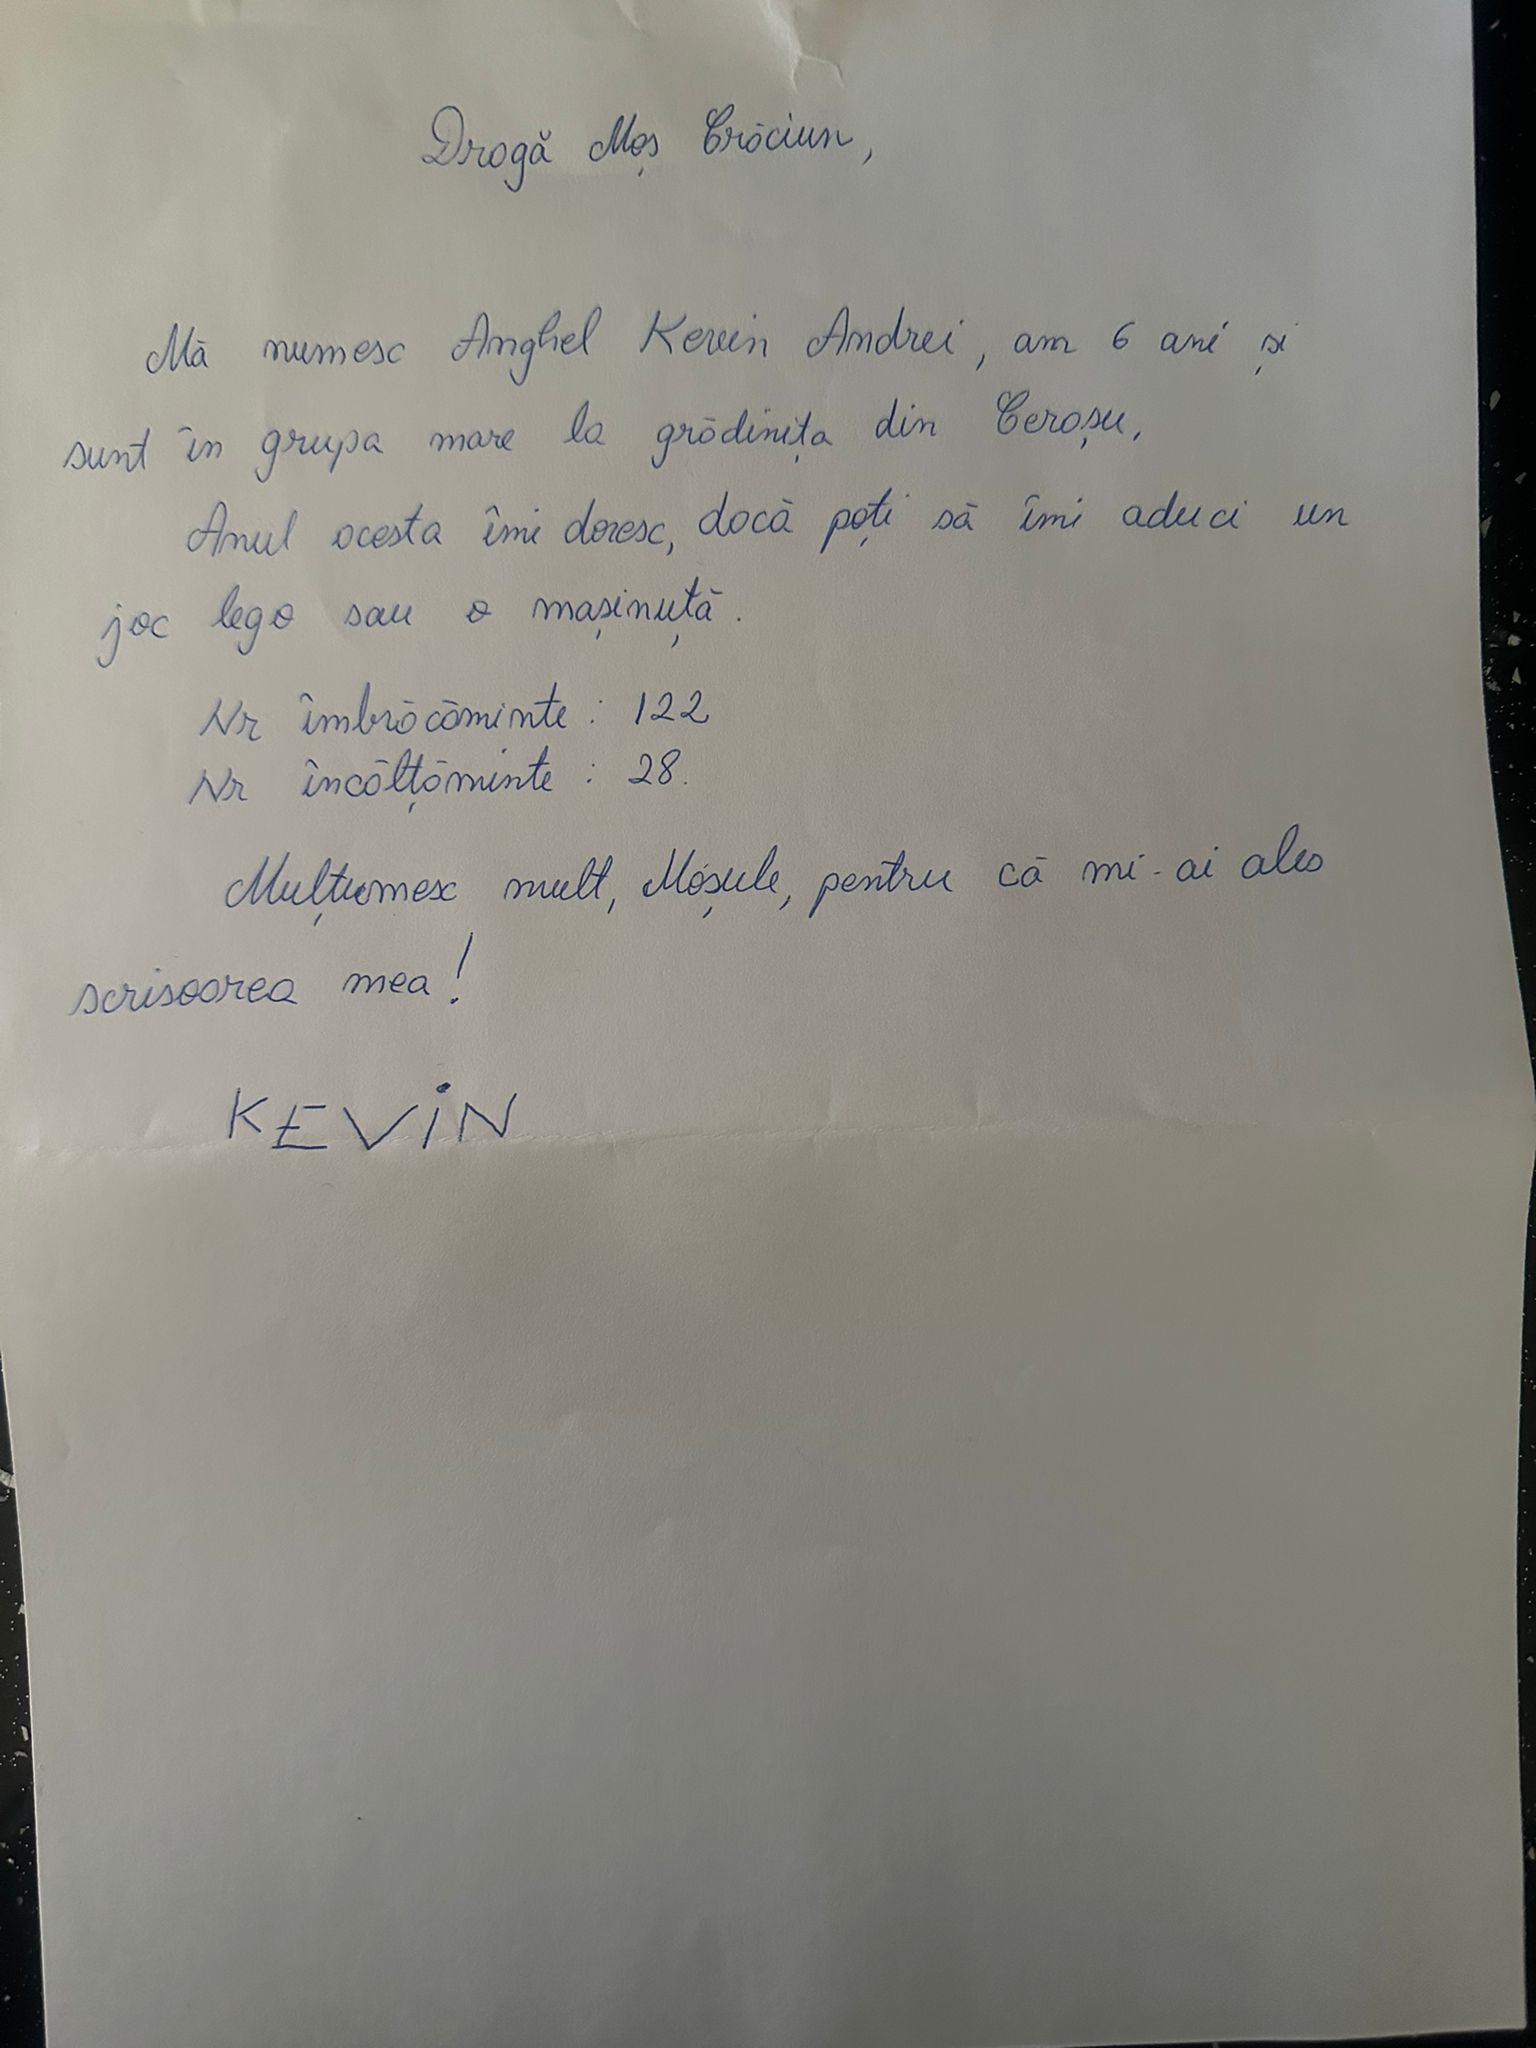 Dragă Moș Crăciun,
Mă numesc Anghel Kevin Andrei, am 6 ani și
sunt în grupa mare la grădinița din Cerașu.
Anul acesta îmi doresc, dacă poți să îmi aduci un
joc lego sau o mașinuță.
Nr îmbrăcăminte: 122
Nr încălțăminte: 28.
Mulțumesc mult, Moșule, pentru că mi-ai ales
scrisoarea mea!
KEViN